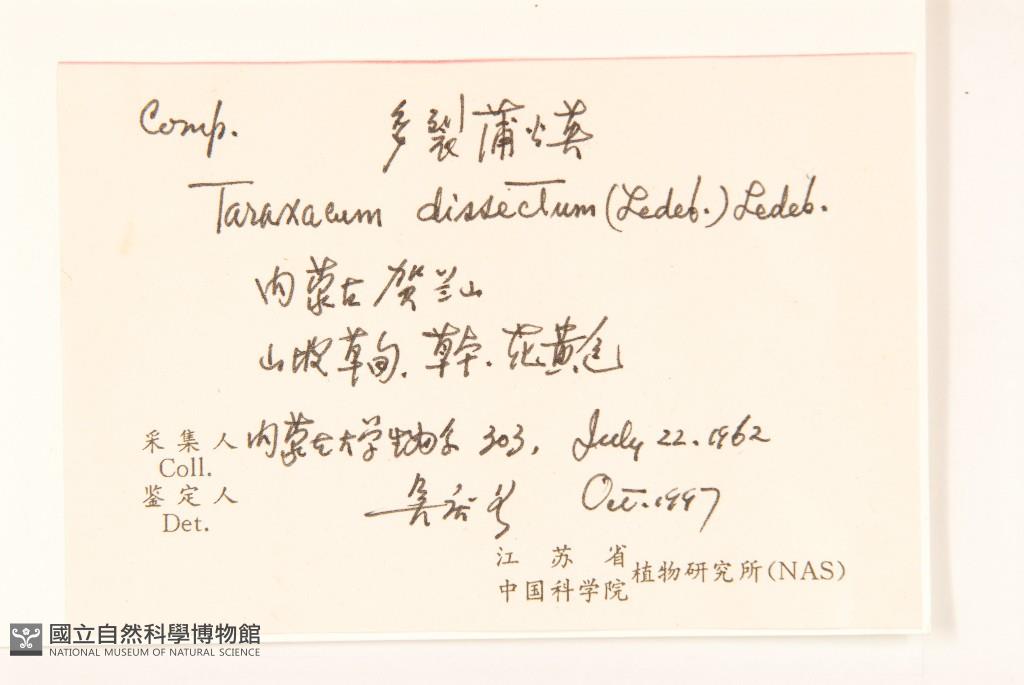 Comp. 多裂蒲公英
Taraxacum dissectum (Ledeb.) Ledeb.
内蒙古 贺兰山
山坡草甸、草本、花黄色
采集人 内蒙古大学生物系 303, July 22. 1962
Coll.
鉴定人 Oct. 1997
Det.
江苏省
中国科学院 植物研究所(NAS)
國立自然科學博物館
NATIONAL MUSEUM OF NATURAL SCIENCE